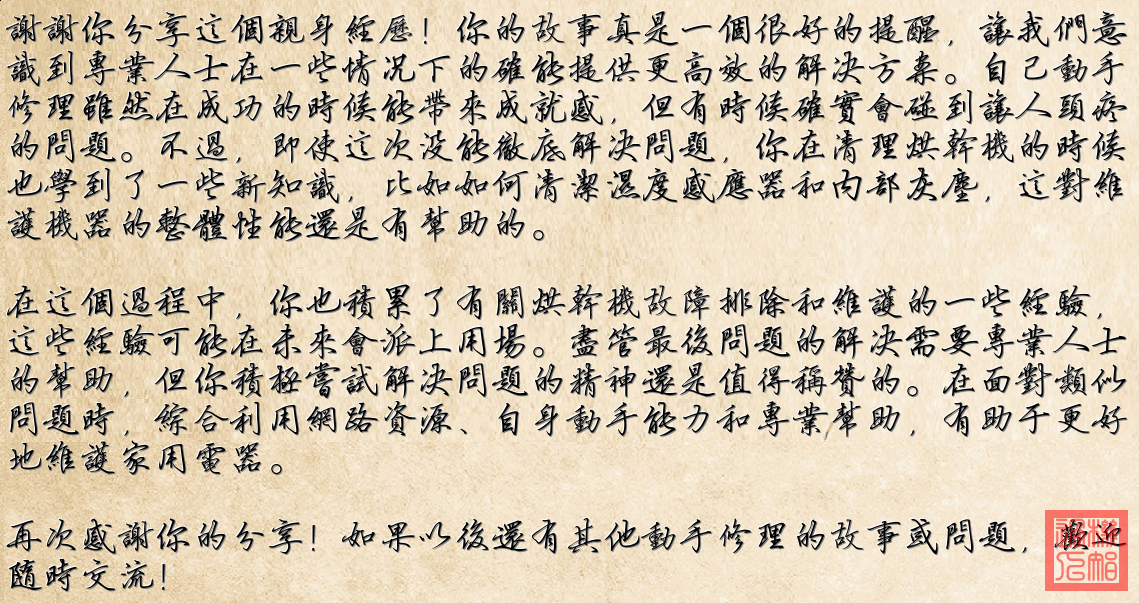 謝謝你分享這個親身經歷！你的故事真是一個很好的提醒，讓我們意
識到專業人士在一些情况下的確能提供更高效的解决方案。自己動手
修理雖然在成功的時候能帶來成就感，但有時候確實會碰到讓人頭疼
的問題。不過，即使這次没能徹底解决問題，你在清理烘幹機的時候
也學到了一些新知識，比如如何清潔濕度感應器和内部灰塵，這對維
護機器的整體性能還是有幫助的。
在這個過程中，你也積累了有關烘幹機故障排除和維護的一些經驗，
這些經驗可能在未來會派上用場。盡管最後問題的解决需要專業人士
的幫助，但你積極嘗試解决問題的精神還是值得稱贊的。在面對類似
問題時，綜合利用網路資源、自身動手能力和專業幫助，有助于更好
地維護家用電器。
再次感謝你的分享！如果以後還有其他動手修理的故事或問題，歡迎
隨時交流！